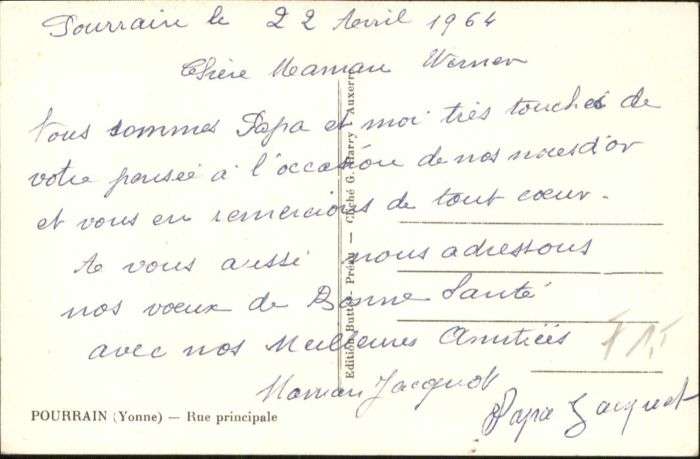 Pourrain le 22 Avril 1964
Chère Maman Werner
Nous sommes Papa et moi très touchés de
votre pensée à l'occasion de nos noces d'or
et vous en remercions de tout coeur.
A vous aussi nous adressons
nos voeux de Bonne Santé
avec nos Meilleures Amitiés
Maman Jacquot
Papa Jacquot
POURRAIN (Yonne) — Rue principale
Edition Buttet - Précy — Cliché G. Harry - Auxerre